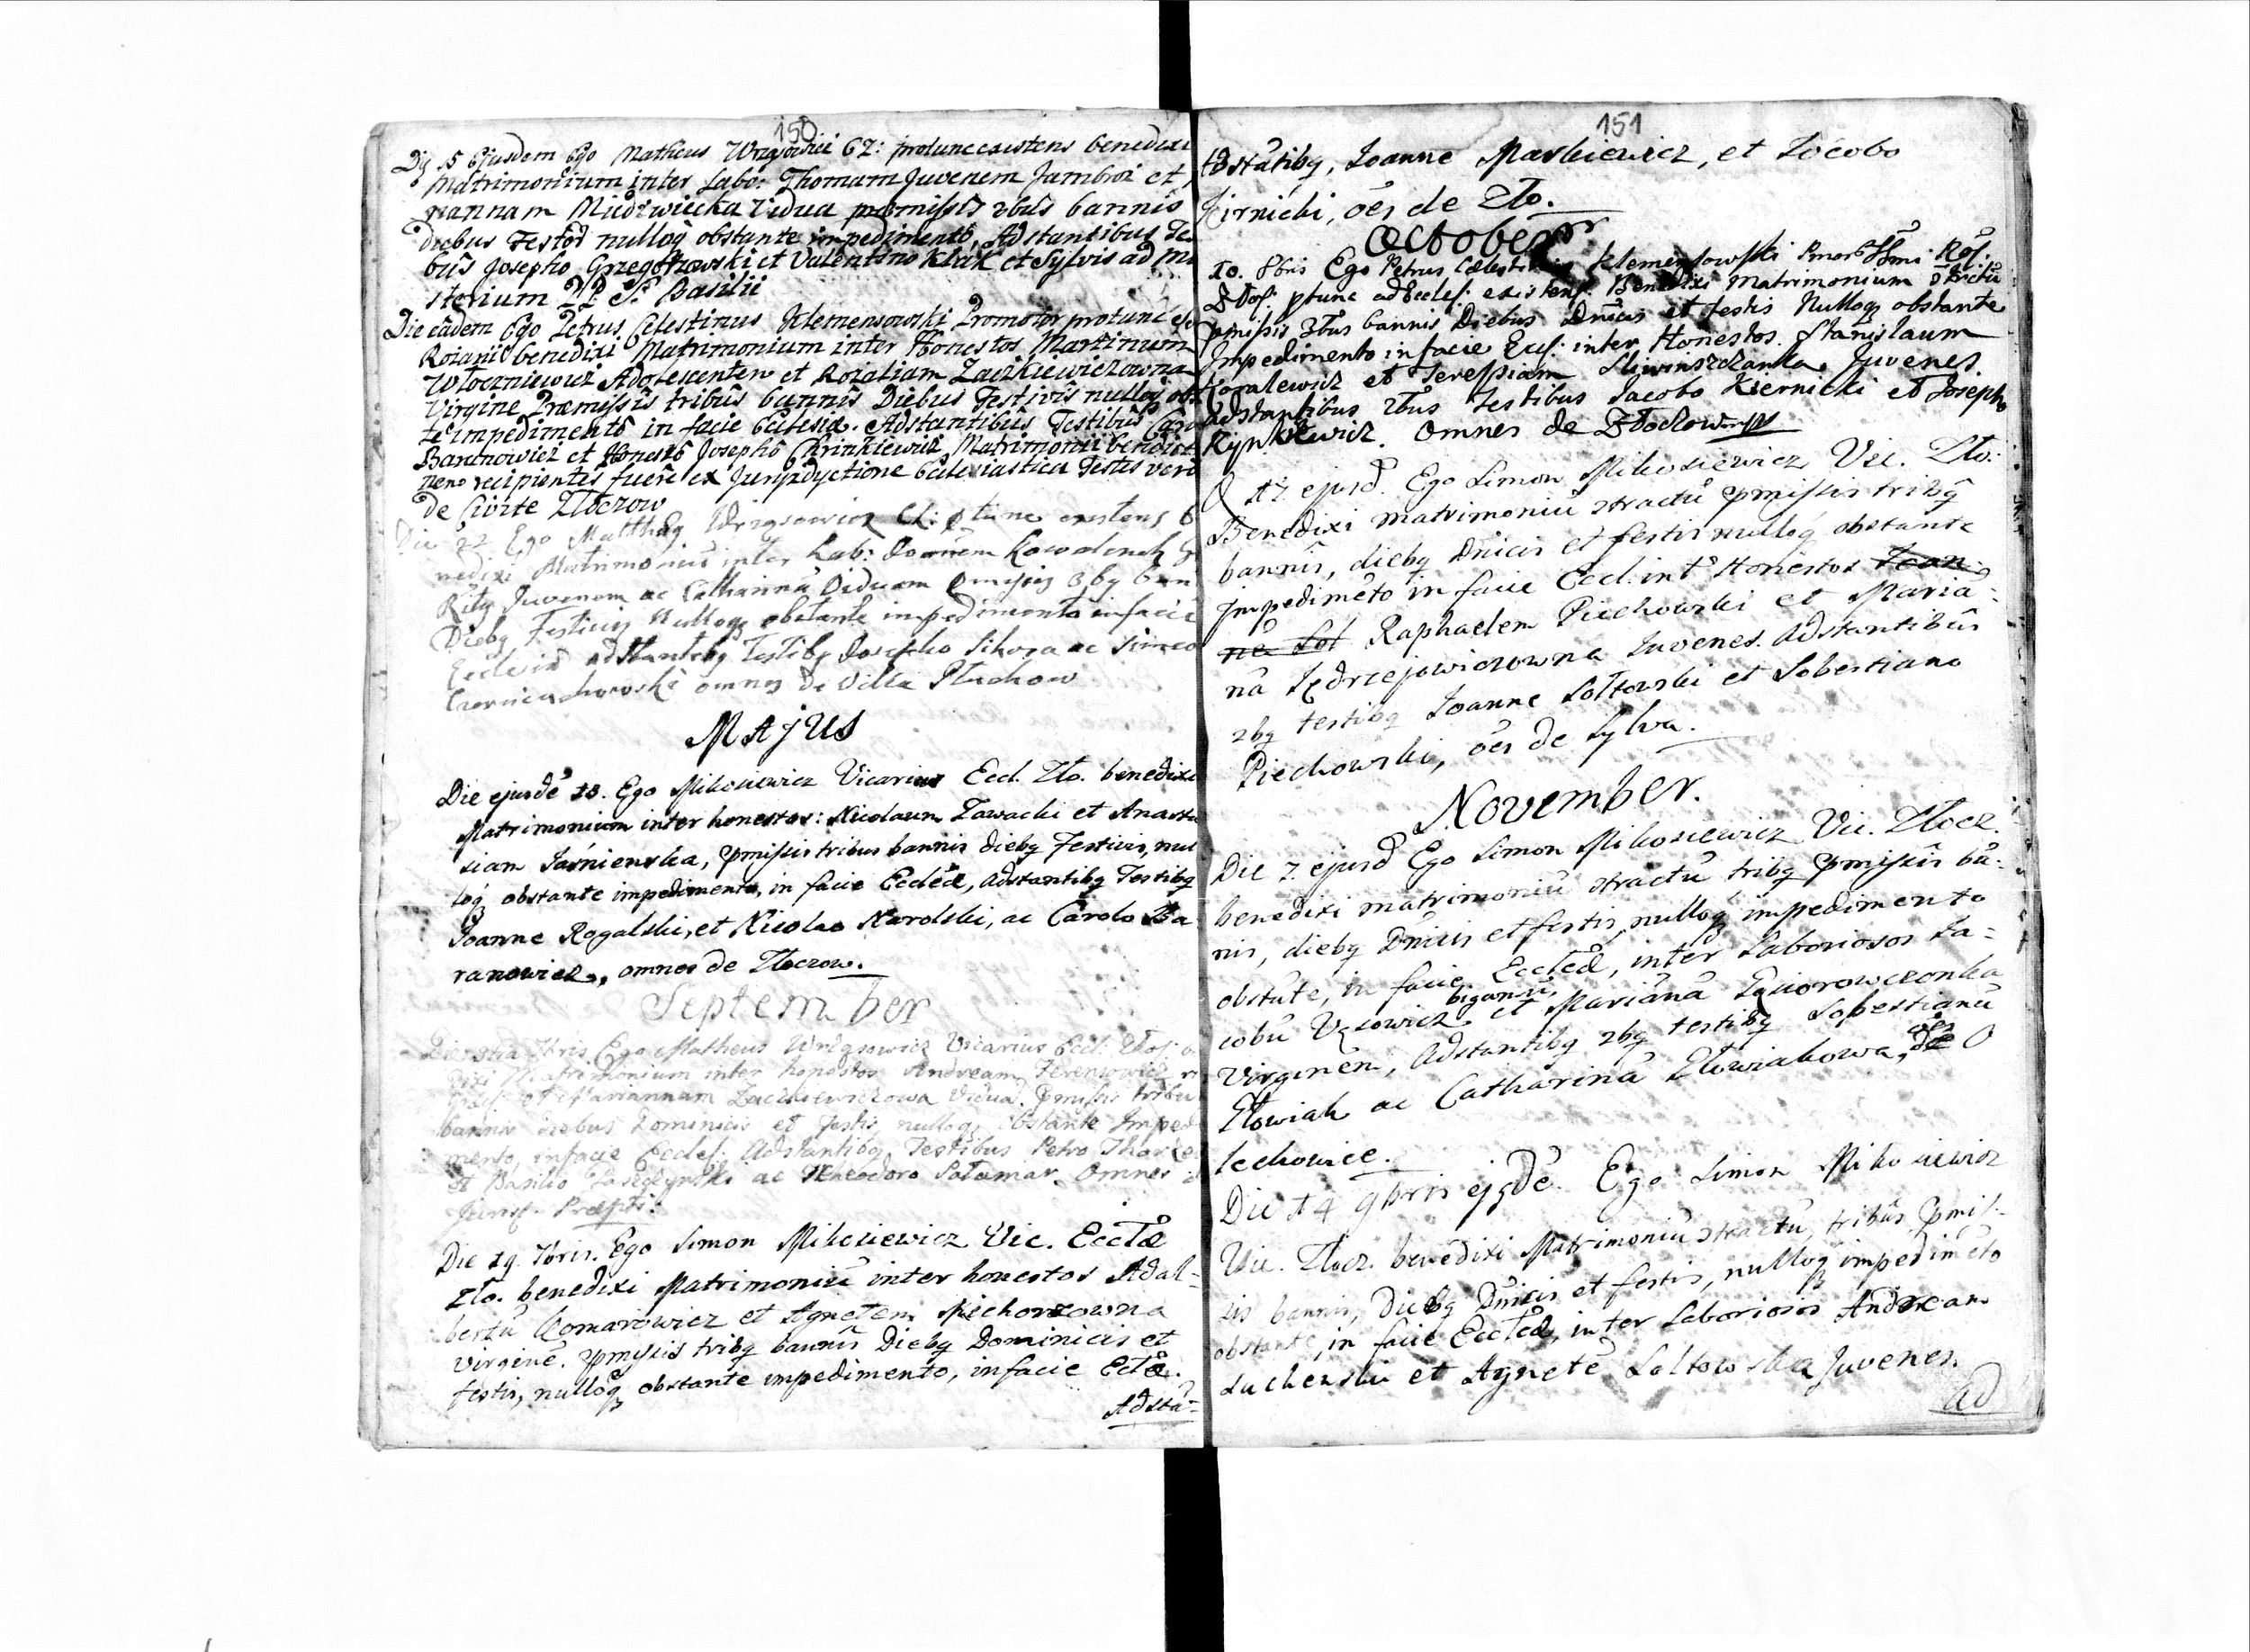 150
Die 15 Ejusdem Ego Matheus Wrzgsowicz protunc existens benedixi
Matrimonium inter Labo: Thomam Juvenem Jambroz et
riannam Miedzwiecka Vidua præmissis 3bus bannis
diebus Festos nulloq obstante impedimento, Adstantibus Te
bus Josepho Grzegorzowski et Valentino Kluk et Sylvis ad
sterium PP S. Basilii
Die eâdem Ego Petrus Celestinus Klemensowski Promotor protunc
Rozarii benedixi Matrimonium inter Honestos Martinum
Wloczniewicz Adolescentem et Rozaliam Zaczkiewiczowna
Virgine Præmissis tribus bannis Diebus Festivis nulloq obs
te impedimento in facie Ecclesiæ. Adstantibus Testibus
Baranowicz et Honesto Josepho Chrinkiewicz, Matrimonii
recipientes fuere ex Jurysdyctione Eclesiastica Testes vero
de Civite Zloczow
Die 22 Ego Matthæq Wrzgsowicz ptunc existens
nedixi Matrimoniu inter Lab: Joannem Kowalczuk
Ritq Juvenem ac Catharinna Viduam pmissis 3bq ban
Diebq Festivis Nulloq obstante impedimento in facie
Ecclesiæ adstantibq Testibq Josepho Sikora ac Simeo
omnes de Villa Pluchow
Majus
Die ejusdē 18. Ego Mikosiewicz Vicarius Eccl. Zlo. benedixi
Matrimonium inter honestos: Nicolaum Zawacki et Anasta
siam Jaśnienska, pmissis tribus bannis diebq Festivis, nul
loq obstante impedimento, in facie Eccleæ, adstantibq Testibq
Joanne Rogalski, et Nicolao Narolski, ac Carolo Ba
ranowicz, omnes de Zloczow.
September
7bris Ego Matheus Wrzgsowicz Vicarius Eccl: Zloc:
dixi Matrimonium inter honestos Andream Ferensowicz
et Mariannam Zaczkiewiczowa Vidua. Pmissis tribu
bannis diebus Dominicis et Festis nulloq obstante Imped
mento, in facie Eccles: Adstantibq Testibus Petro
et Basilio ac Theodoro Salamar. Omnes
Die 19. 7bris. Ego Simon Mikosiewicz Vic. Ecclæ
Zlo. benedixi Matrimoniū inter honestos Adal=
bertū Komarowicz et Agnetem Piechorzowna
virginē. pmissis tribq bannis Diebq Dominicis et
festis, nulloq obstante impedimento, in facie Eclæ.
Adstā=
151
tdstātibq, Joanne Markiewicz, et Jocobo
Kirnicki, oēs de Zlo.
October
10. 8bris Ego Petrus Cælestinus Klemensowski Promor SSmi Ros:
Zlos: ptunc ad Eccles: existens Benedixi Matrimonium strictū
pmissis 3bus bannis Diebus Dnicis et festis Nulloq obstante
Impedimento in facie Eccl: inter Honestos Stanislaum
Koralewicz et Teressiam Sliwinszczanka Juvenes.
Adstantibus 2bus Testibus Jacobo Kiernicki et Josepho
Omnes de Zloczow
D 17 ejusd. Ego Simon Mikosiewicz Vic. Zlo.
Benedixi matrimoniū stractū pmissis tribq
bannis, diebq Dnicis et festis nulloq obstante
impedimēto in facie Eccl. int. Honestos Joan-
nē Sol Raphaelem Piechowski et Maria=
nā Jędrzejowiczowna Juvenes. Adstantibus
2bq testibq Joanne Soltowski et Sobestiano
Piechowski, oēs de Sylva.
November.
Die 7. ejusd Ego Simon Mikosiewicz Vic. Zlocz.
benedixi matrimoniū stractū tribq pmissis bā=
nis, diebq Dnicis et festis, nulloq impedimento
obstāte, in facie Eccleæ, inter Laboriosos Ja=
cobū Uzowicz bigamū, et Mariānā Gąsiorowczonka
Virginēm, Adstantibq 2bq testibq Sobestianū
Zlowiak ac Catharinā Zlowiakowa, oēs de O
lechowice.
Die 14 9bris ejsdē. Ego Simon Mikosiewicz
Vic. Zlocz. benedixi Matrimoniū stractū, tribus pmis-
sis bannis, Diebq Dnicis et festis, nulloq impedimēto
obstante, in facie Eccleæ, inter Laboriosos Andream
Suchenski et Agnetē Soltowska Juvenes.
ad